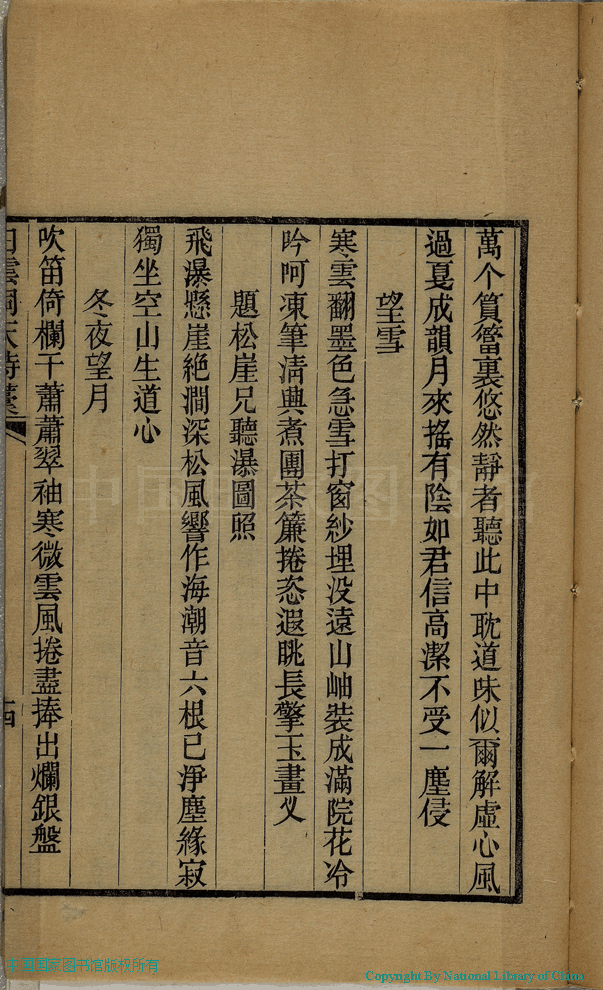 萬个篔簹裏悠然靜者聽此中耽道味似爾解虛心風
過戛成韻月來搖有陰如君信高潔不受一塵侵
望雪
寒雲翻墨色急雪打窗紗埋没遠山岫裝成滿院花冷
吟呵凍筆淸興煮團茶簾捲恣遐眺長擎玉畫叉
題松崖兄聽瀑圖照
飛瀑懸崖絶澗深松風響作海潮音六根已淨塵緣寂
獨坐空山生道心
冬夜望月
吹笛倚欄干蕭蕭翠袖寒微雲風捲盡捧出爛銀盤
白雲洞天詩藳
四
中国国家图书馆
中国国家图书馆版权所有
Copyright By National Library of China